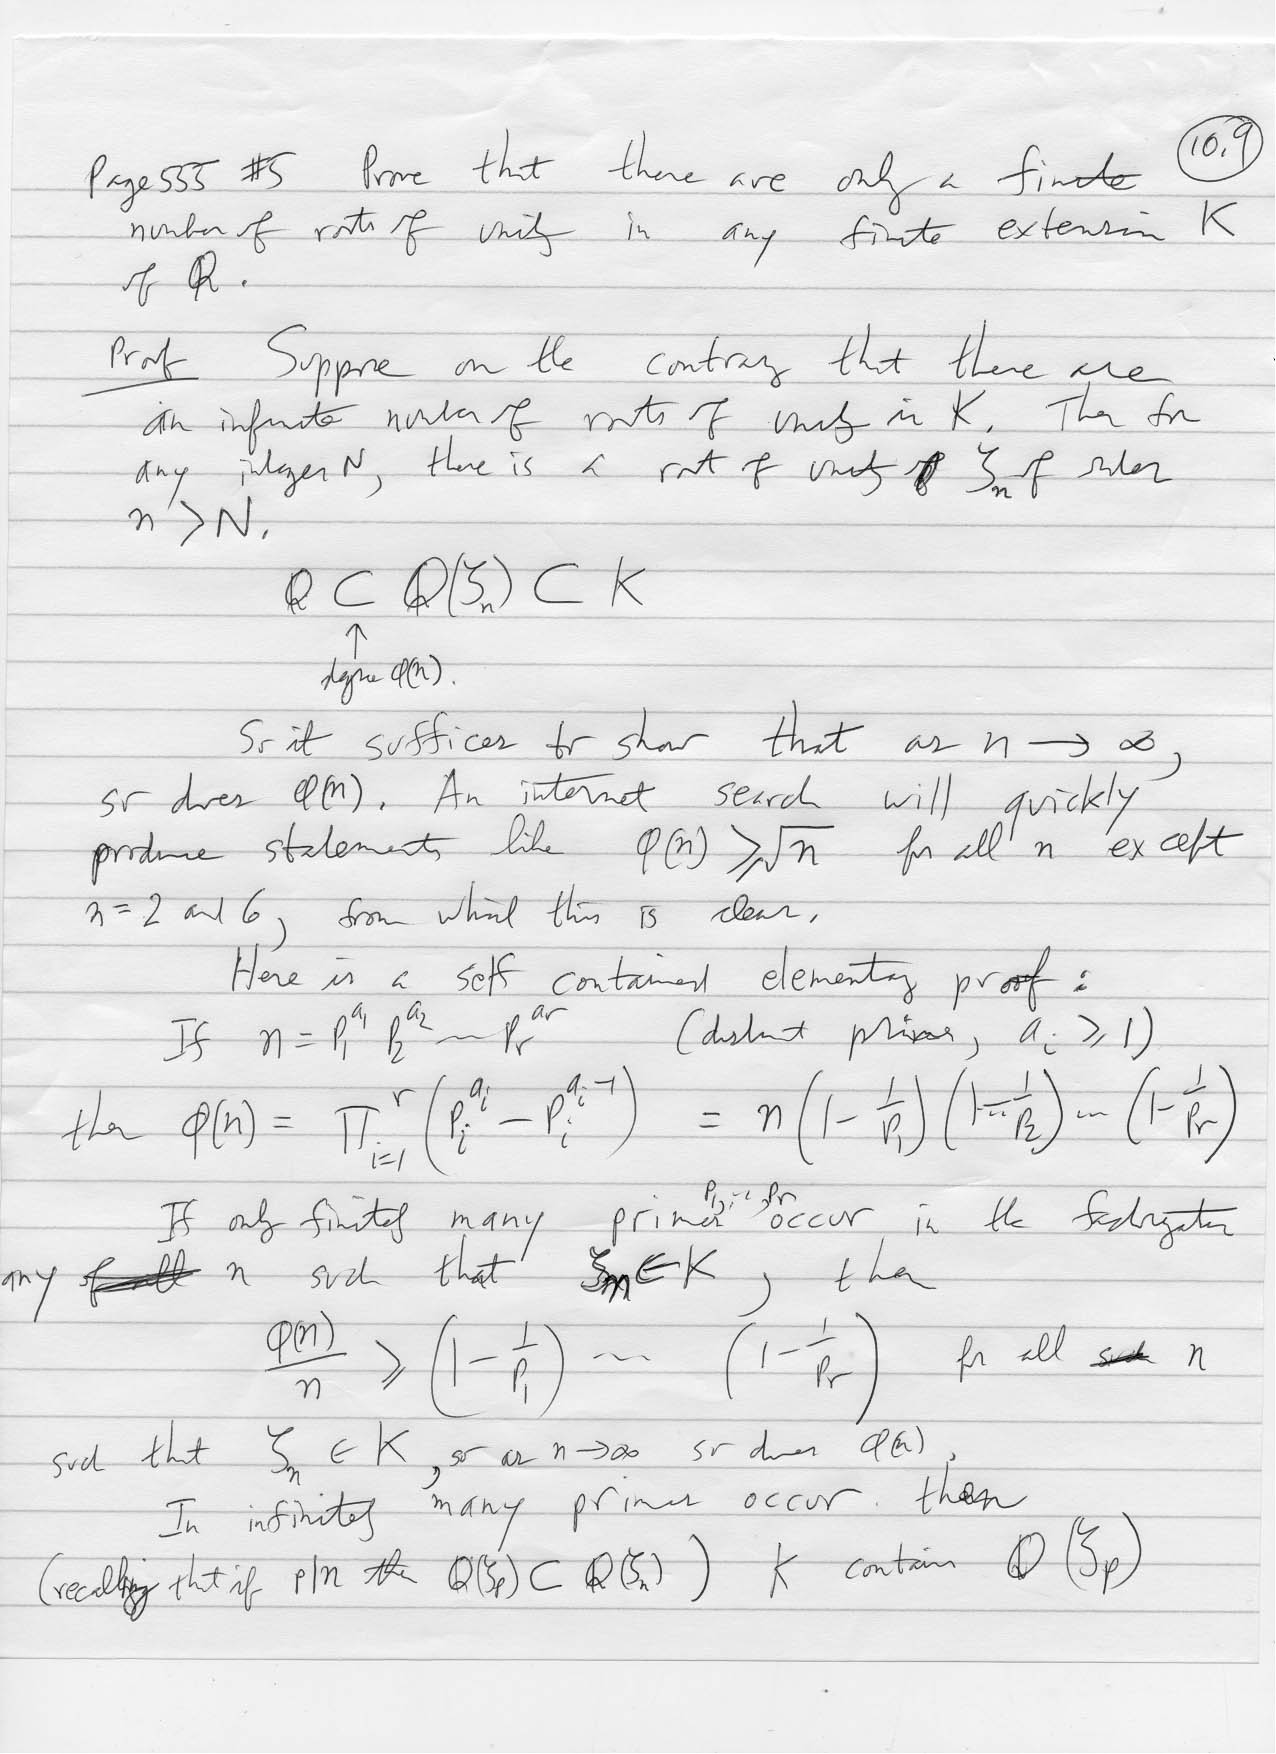 10.9
Page 555 #5 Prove that there are only a finite
number of roots of unity in any finite extension K
of ℚ.
Proof Suppose on the contrary that there are
an infinite number of roots of unity in K. Then for
any integer N, there is a root of unity ζ_n of order
n > N.
ℚ ⊂ ℚ(ζ_n) ⊂ K
↑
degree φ(n).
So it suffices to show that as n → ∞,
so does φ(n). An internet search will quickly
produce statements like φ(n) ≥ √n for all n except
n = 2 and 6, from which this is clear.
Here is a self contained elementary proof:
If n = p_1^{a_1} p_2^{a_2} ⋯ p_r^{a_r} (distinct primes, a_i ≥ 1)
then φ(n) = ∏_{i=1}^r (p_i^{a_i} − p_i^{a_i−1}) = n(1 − 1/p_1)(1 − 1/p_2) ⋯ (1 − 1/p_r)
If only finitely many primes p_1, ..., p_r occur in the factorization
any n such that ζ_n ∈ K, then
φ(n)/n ≥ (1 − 1/p_1) ⋯ (1 − 1/p_r) for all n
such that ζ_n ∈ K, so as n → ∞ so does φ(n).
In infinitely many primes occur then
(recalling that if p|n then ℚ(ζ_p) ⊂ ℚ(ζ_n)) K contains ℚ(ζ_p)